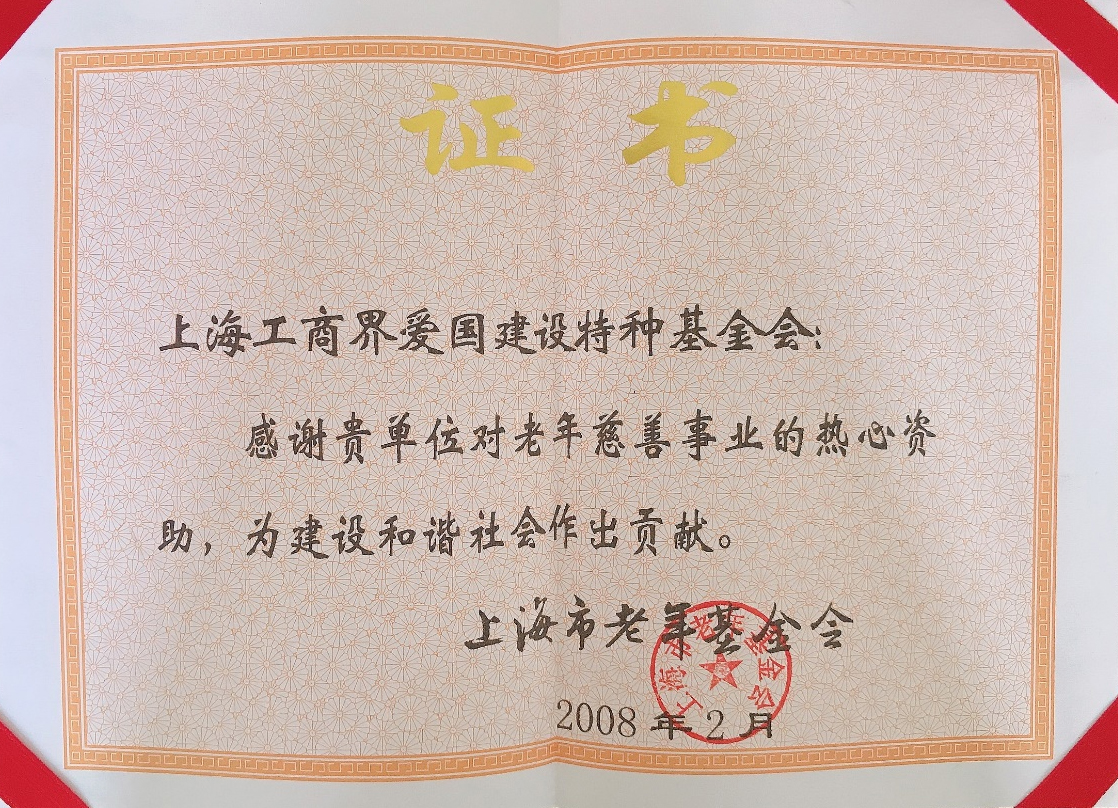 证书
上海工商界爱国建设特种基金会：
感谢贵单位对老年慈善事业的热心资
助，为建设和谐社会作出贡献。
上海市老年基金会
上海市老年基金会
2008 年 2 月